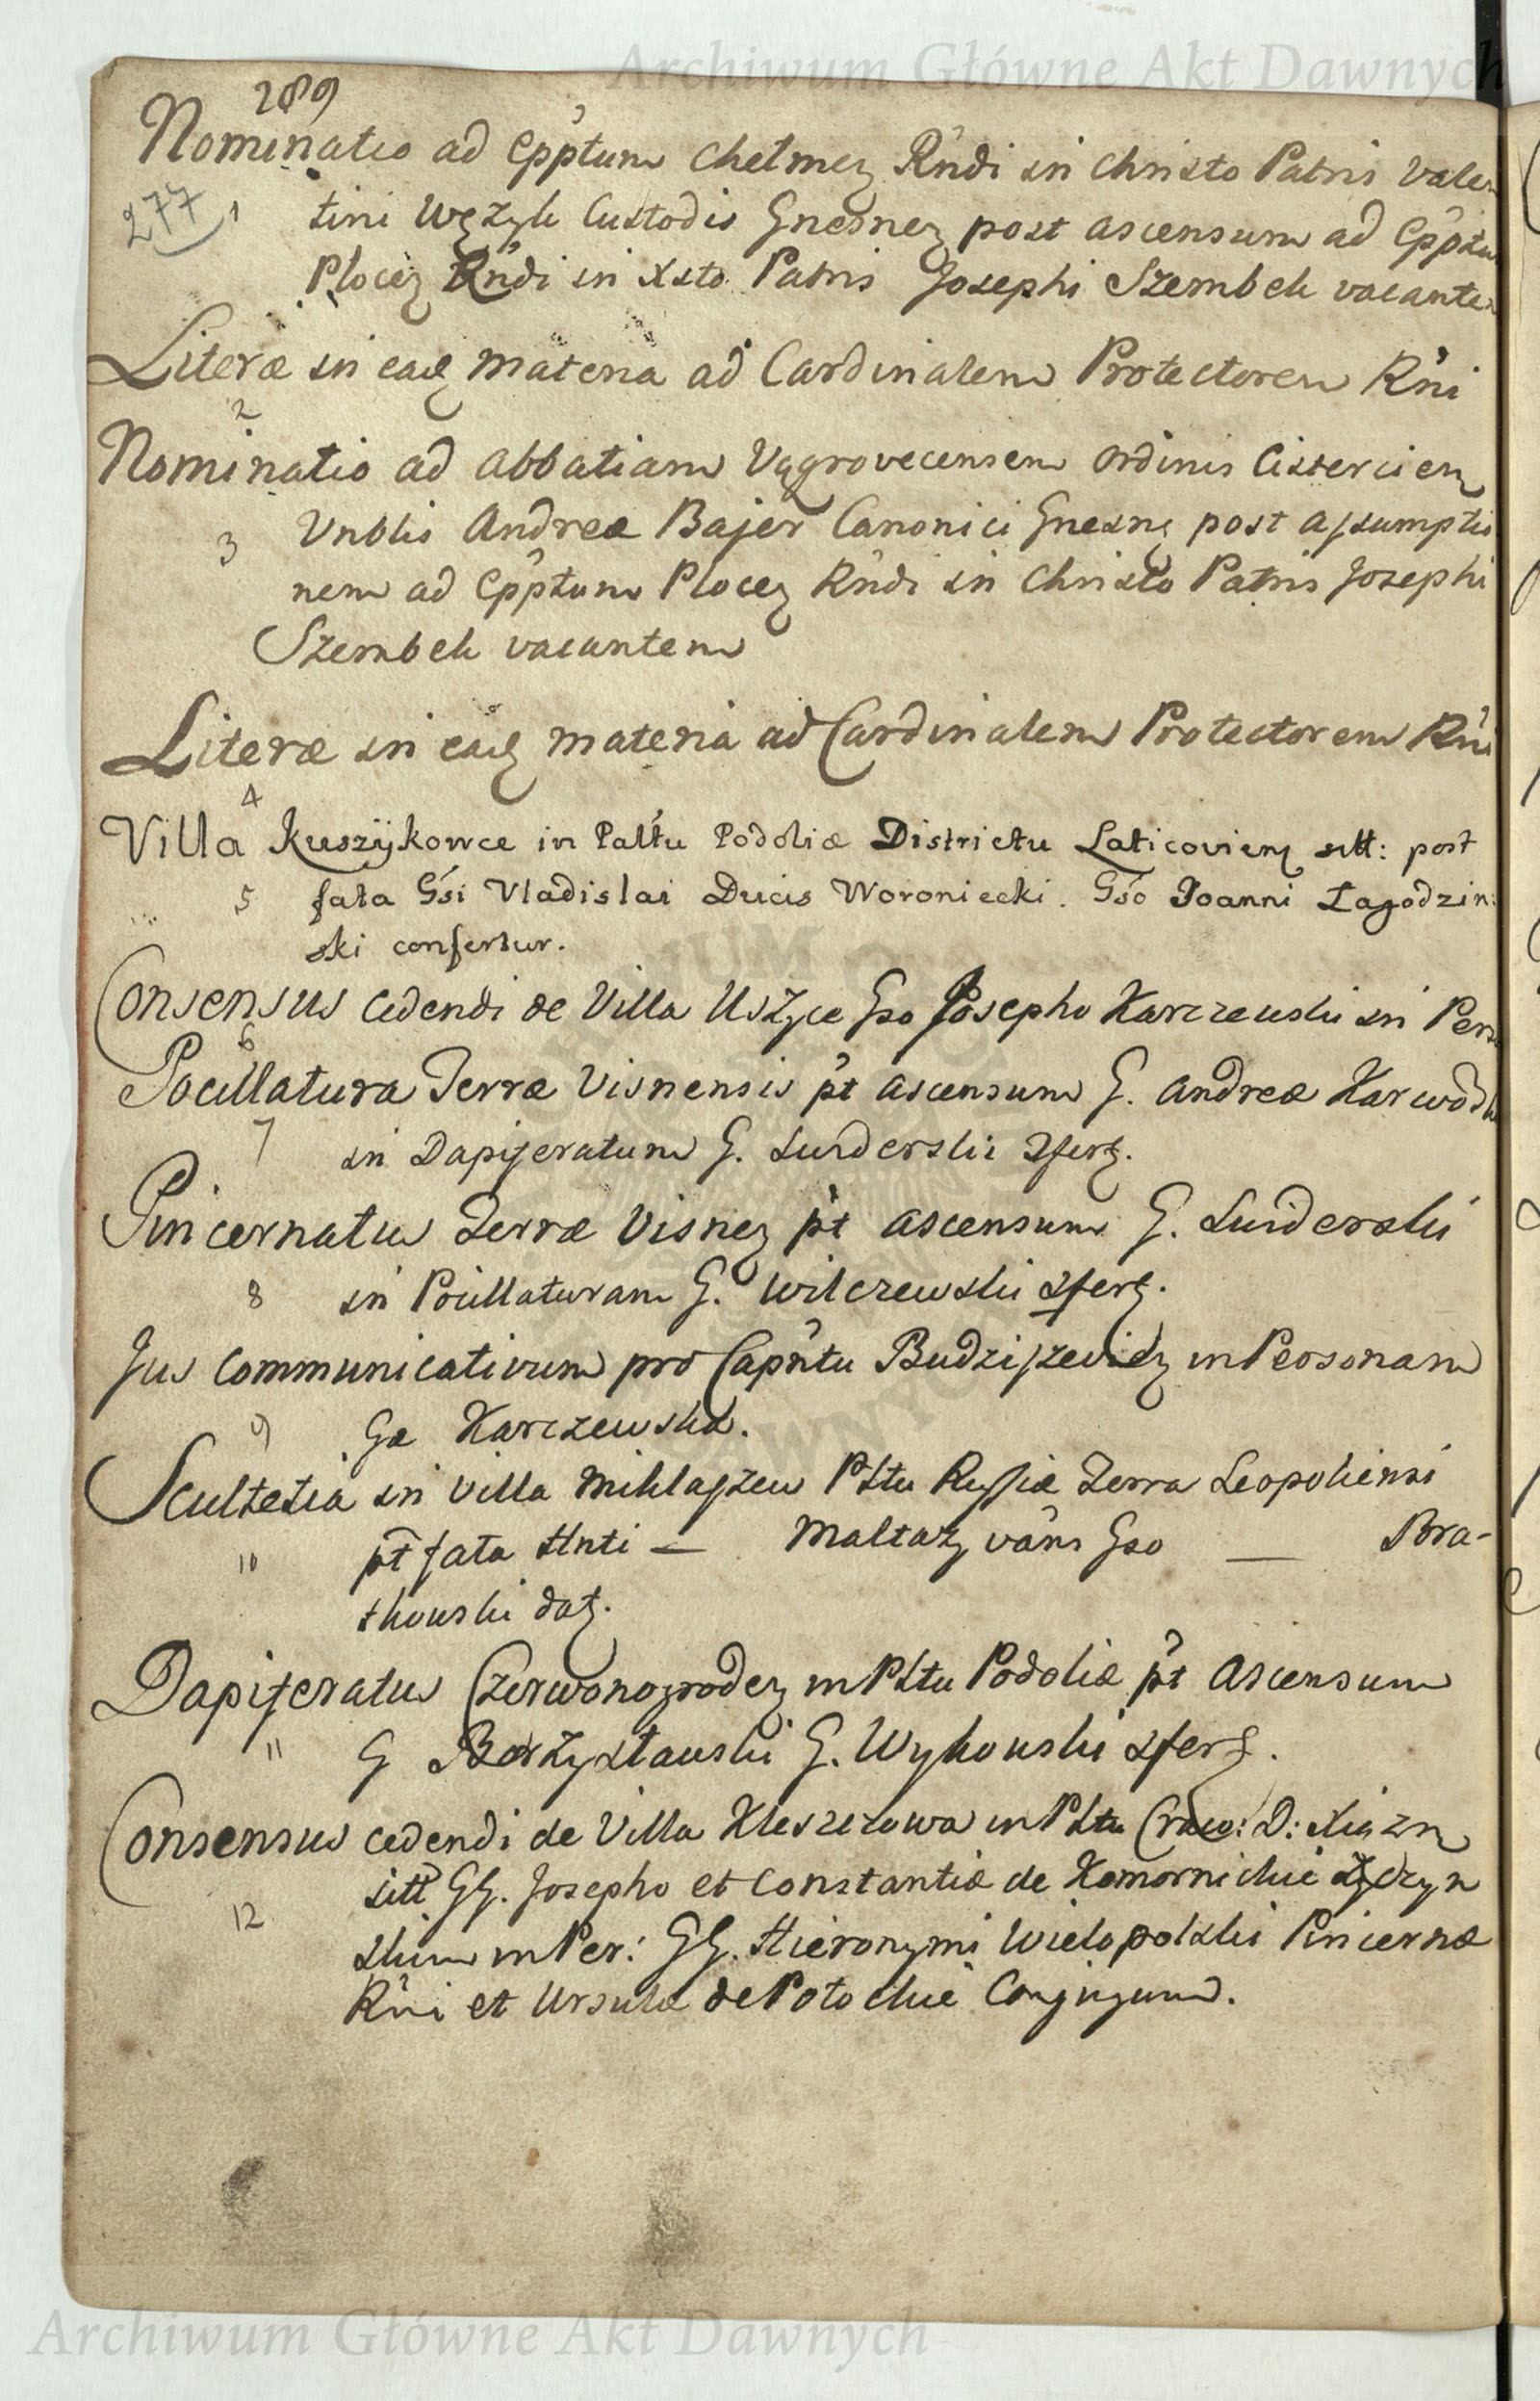 Archiwum Główne Akt Dawnych
289
Nominatio ad Epp̃tum Chelmeȝ Rñdi in Christo Patris Valen
277 1 tini Wężyk Custodis Gnesneȝ post ascensum ad Epp̃tum
Ploceȝ Rñdi in Xsto Patris Josephi Szembek vacantem
Literæ in eadȝ materia ad Cardinalem Protectorem Rñi
2
Nominatio ad Abbatiam Vągrovecensem Ordinis Cistercienȝ
3 Vnblis Andreæ Bajer Canonici Gnesnȝ post assumptio
nem ad Epp̃tum Ploceȝ Rñdi in Christo Patris Josephi
Szembek vacantem
Literæ in eadȝ materia ad Cardinalem Protectorem Rñi
4
Villa Kuszÿkowce in Palt̃u Podoliæ Districtu Laticovienȝ sitt: post
5 fata Gsi Vladislai Ducis Woroniecki. Gso Joanni Łagodzin:
ski confertur.
Consensus cedendi de Villa Uszyce Gso Josepho Karczewski in Pers
6
Pocillatura Terræ Visnensis p̃t ascensum G. Andreæ Karwosk
7 in Dapiferatum G. Swiderski Zferȝ.
Pincernatus Terræ Visneȝ p̃t ascensum G. Swiderski
8 in Pocillaturam G. Wilczewski Zferȝ.
Jus communicativum pro Capñtu Budziszevicȝ in Personam
9 Gæ Karczewska.
Scultetia in Villa Miklaszew Pltu Russiæ Terra Leopoliensi
10 p̃t fata Hnti — Maltaȝ vãns Gso — Bra-
tkowski datȝ.
Dapiferatus Czerwonogrodeȝ in Pltu Podoliæ p̃t Ascensum
11 G Borzysławski G. Wykowski Zferȝ.
Consensus cedendi de Villa Kleszczowa in Pltu Crac: D: Xiązn
12 sitt GG. Josepho et Constantiæ de Komornickie
skim in Per: GG. Hieronymi Wielopolski Pincernæ
Rñi et Ursulæ de Potockie Conjugum.
Archiwum Główne Akt Dawnych